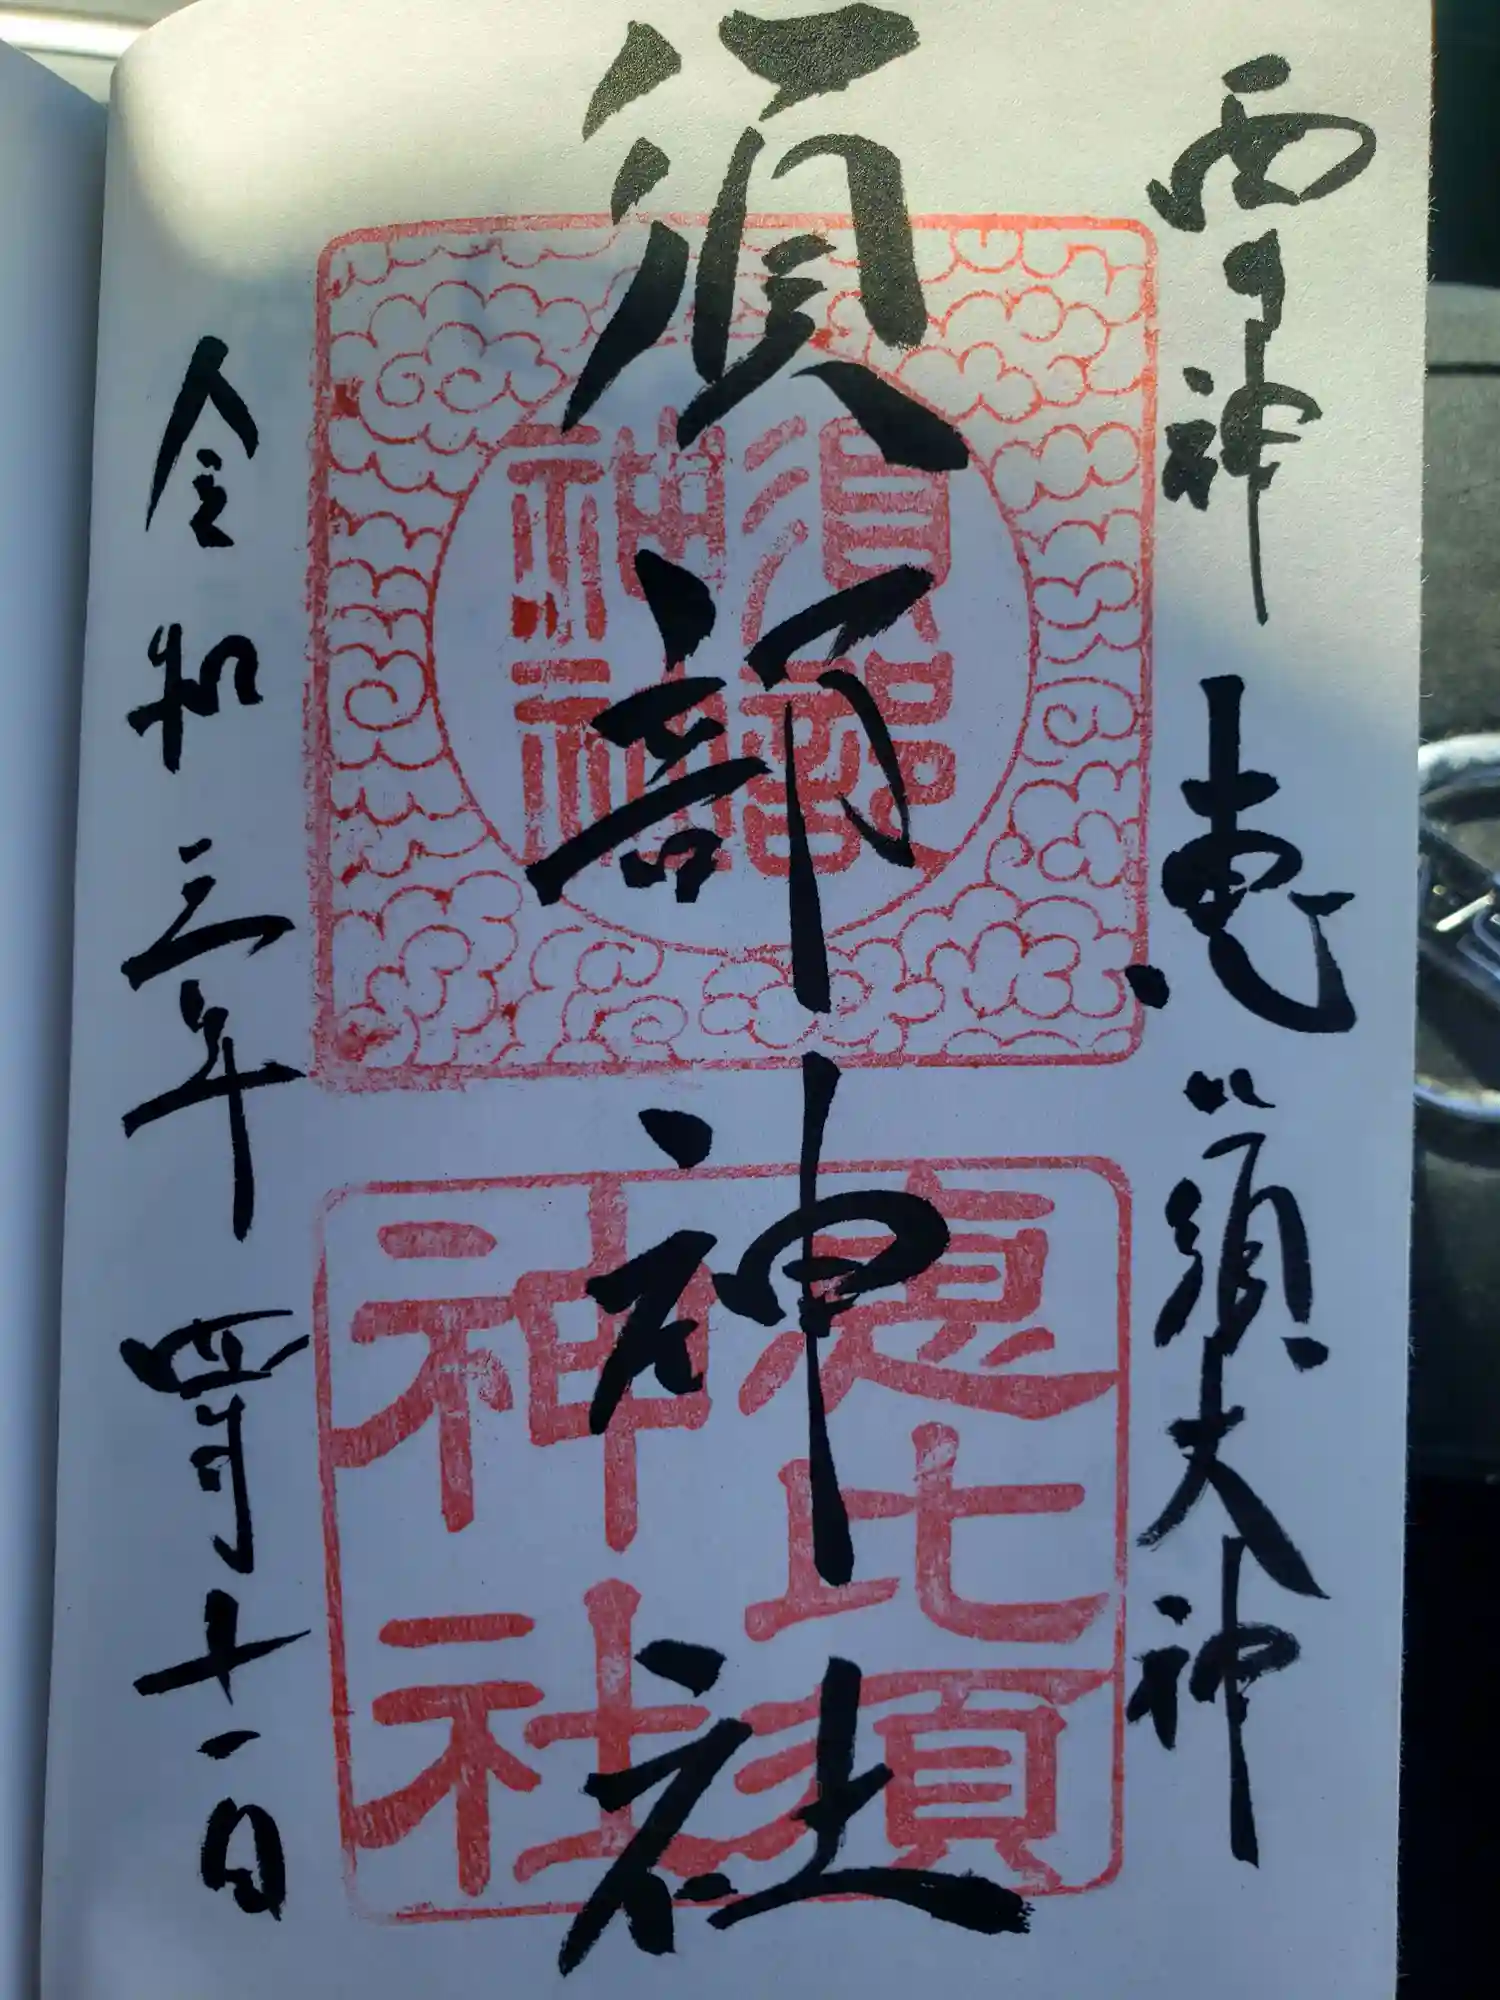 西ノ神 恵比須大神
須部神社
令和三年四月十一日
須部
神社
恵比須
神社